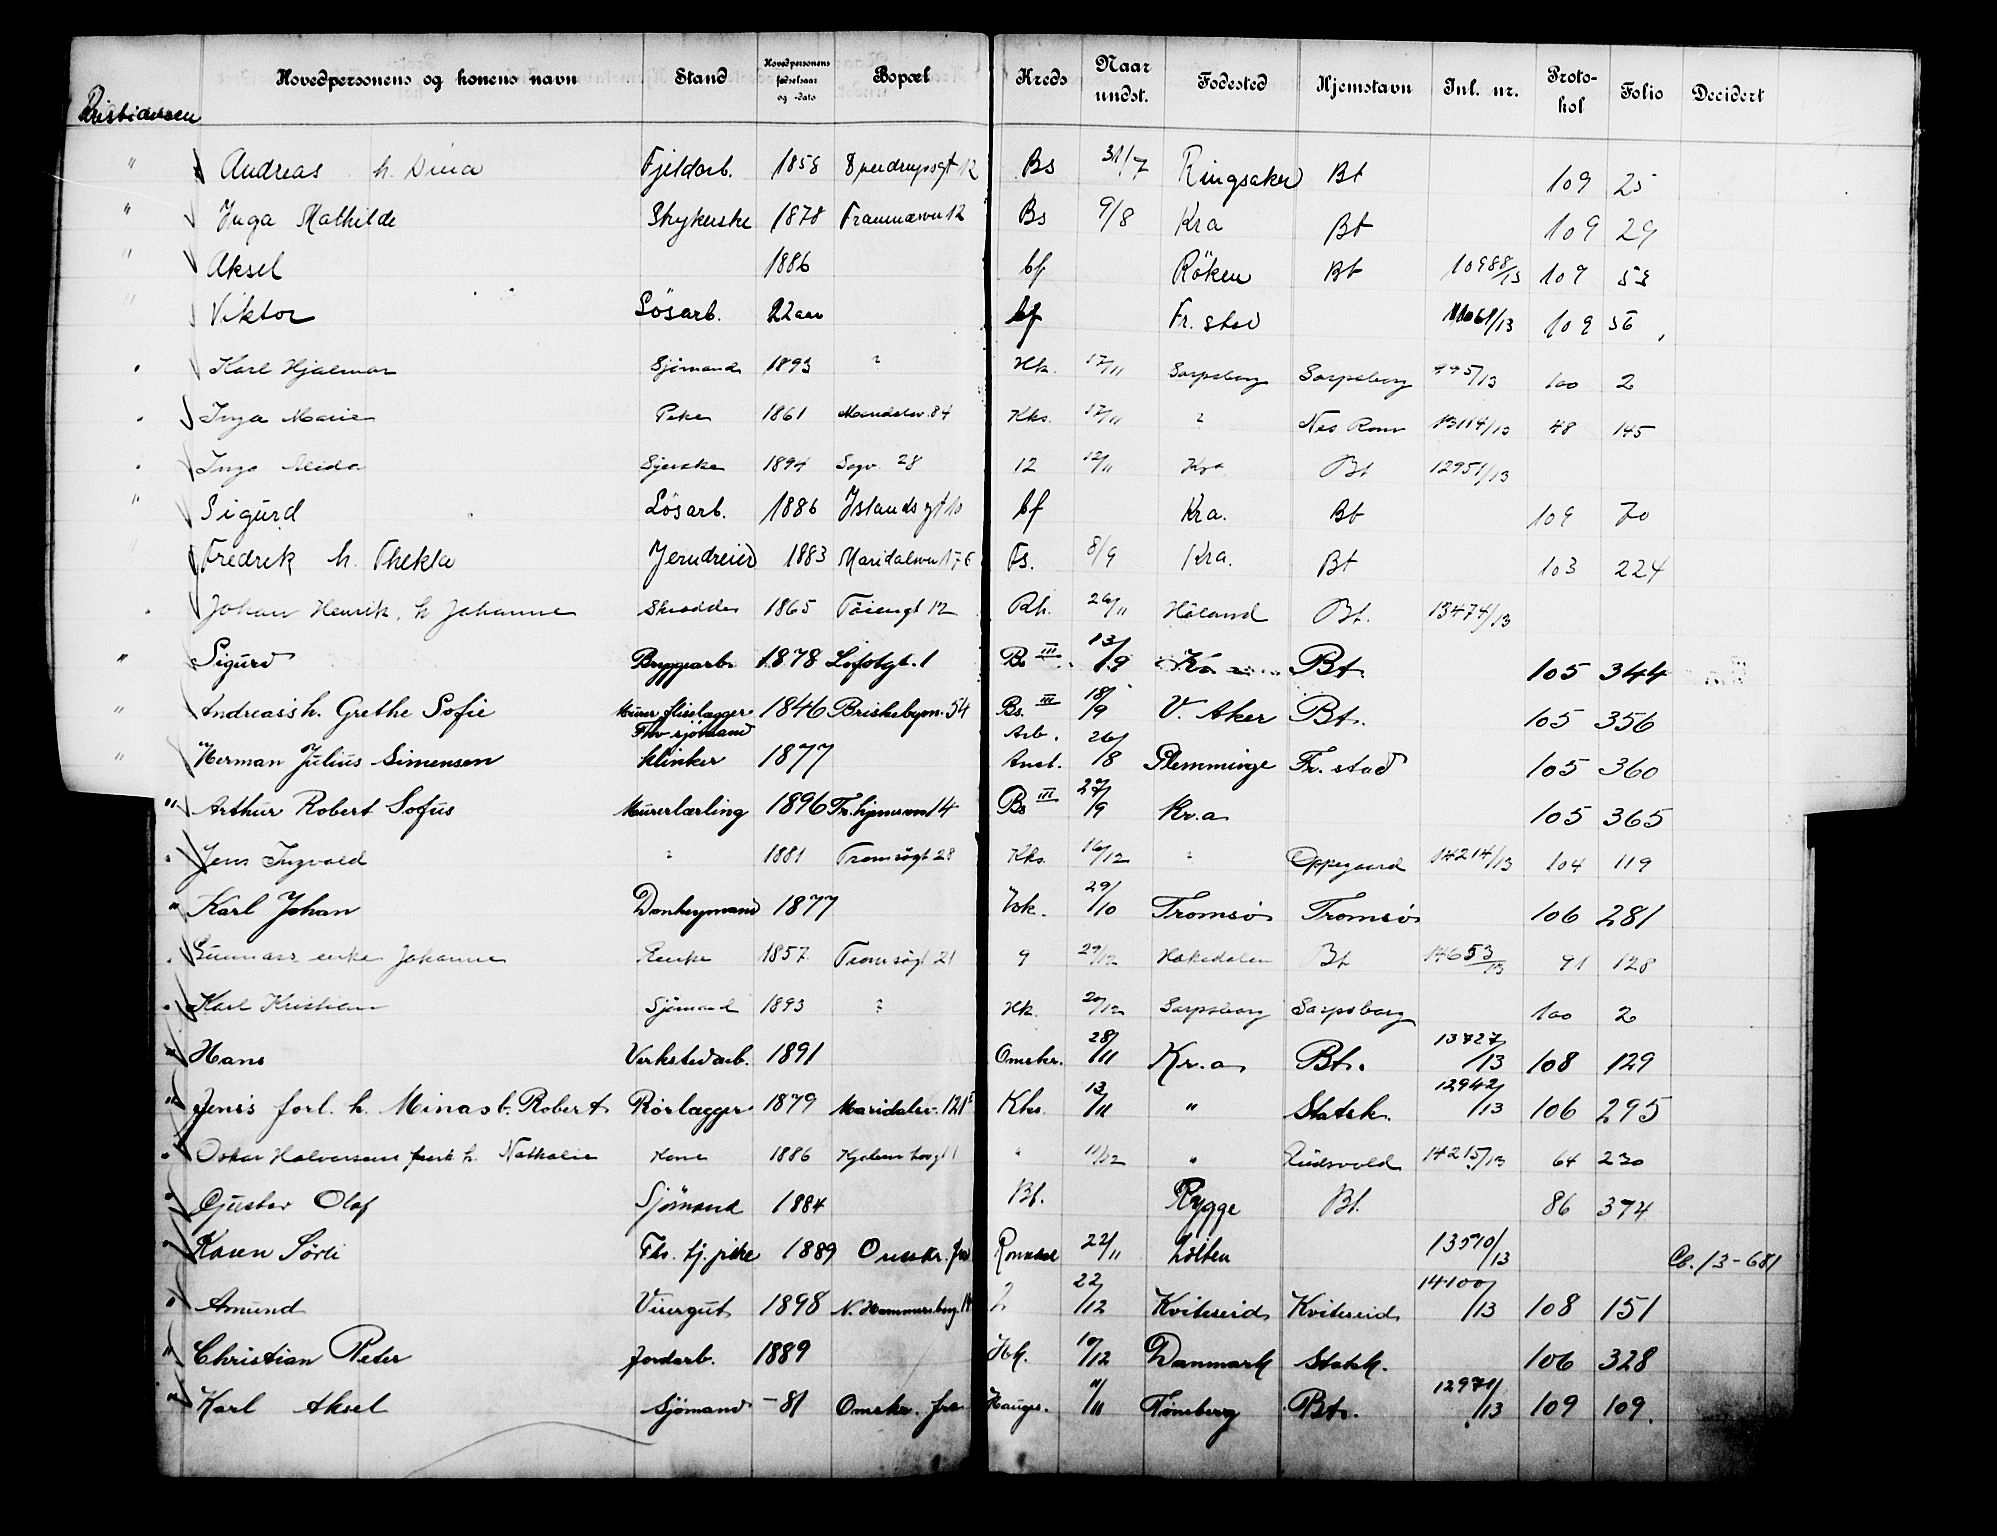 Hovedpersonens og konens navn Stand Hovedpersonens fødselsaar og -dato Bopæl Kreds Naar undst. Fødested Hjemstavn Inl. nr. Protokol Folio Decidert
Kristiansen
" Andreas h. Dina Fjeldarb. 1858 Sperdrupsgt 12 Bs 31/7 Ringsaker Bt 109 25
" Inga Mathilde Strykerske 1878 Framnæsvn 12 Bs 9/8 Kra Bt 109 29
" Aksel 1886 bf Röken Bt 10988/13 109 53
" Viktor Lösarb. 22 aar bf Fr. stad 11061/13 109 56
" Karl Hjalmar Sjömand 1893 ? Hk. 17/11 Sarpsborg Sarpsborg 995/13 100 2
" Inga Marie Pike 1861 Maridalsv. 84 Kks. 17/11 ? Nes Rom 13114/13 48 145
" Inga Alida Syerske 1894 Sagv. 28 12 12/11 Kra Bt 12951/13
" Sigurd Lösarb. 1886 Islandsgt 10 bf Kra. Bt 109 70
" Fredrik h. Thekla Jerndreier 1883 Maridalsvn 176 Fs. 8/9 Kra. Bt 103 224
" Johan Henrik, h Johanne Skrædder 1865 Töiengt 12 Rh. 26/11 Höland Bt. 13474/13
" Sigurd Bryggearb. 1878 Lofotgt. 1 Bs III 13/9 Kra Bt. 105 344
" Andreas's h. Grethe Sofie Murer fliselægger 1846 Briskebyvn. 54 Bs. III 18/9 V. Aker Bt. 105 356
" Herman Julius Simensen Fhv sjömand klinker 1877 Arb. Anst. 26/8 Flemminge Fr. stad 105 360
" Arthur Robert Sofus Murerlærling 1896 Tr.hjemsvn 14 Bs III 27/9 Kr.a 105 365
" Jens Ingvald ? 1881 Tromsögt 28 Kks. 16/12 " Oppegaard 14214/13 104 119
" Karl Johan Donkeymand 1877 Vok. 29/10 Tromsö Tromsö 106 281
" Gunnars enke Johanne Enke 1857 Tromsögt 21 9 29/12 Hakedalen Bt 14653/13 91 128
" Karl Kristian Sjömand 1893 ? Hk. 20/12 Sarpsborg Sarpsborg 100 2
" Hans Verkstedarb. 1891 Omskr. 28/11 Kr.a Bt. 13727/13 108 129
" Jens's forl. h. Minas b. Robert Rørlægger 1879 Maridalsv. 121 Kks. 13/11 " Statsk. 12942/13 106 295
" Oskar Halvorsens h. Nathalie Kone 1886 " 11/12 " Eidsvold 14215/13 64 230
" Gustav Olaf Sjömand 1884 Bf. Rygge Bt. 86 374
" Karen Sörli Fhv. tj. pike 1889 Omskr. fra Romsdal 22/11 Löiten 13510/13 Cb. 13-681
" Amund Visergut 1898 N. Hammersborg. 2 22/12 Kviteseid Kviteseid 14100/13 108 151
" Christian Peter Jordarb. 1889 Hk. 10/12 Danmark Statsk. 106 328
" Karl Aksel Sjömand -81 Omskr. fra Hauges. 11/11 Tönsberg Bt. 12971/13 109 109.